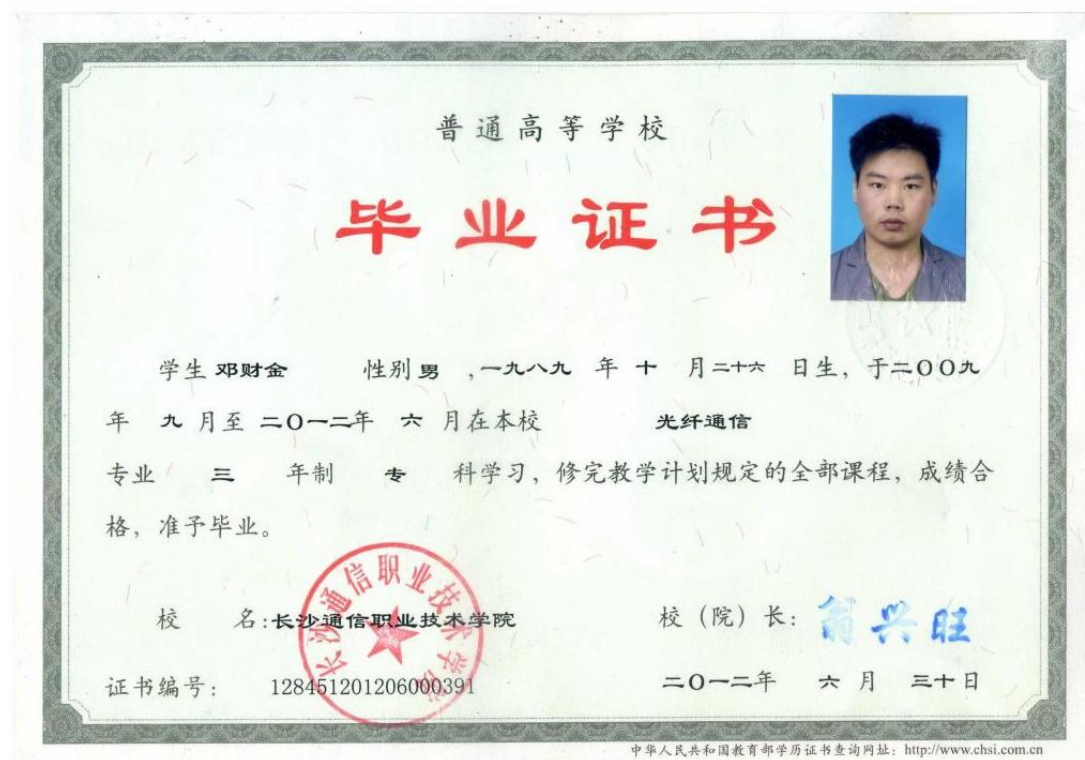 普通高等学校
毕业证书
学生 邓财金 性别 男 ,一九八九 年 十 月二十六 日生，于二〇〇九
年 九 月至 二〇一二年 六 月在本校 光纤通信
专业 三 年制 专 科学习，修完教学计划规定的全部课程，成绩合
格，准予毕业。
长沙通信职业技术学院
校 名:长沙通信职业技术学院 校（院）长: 翁兴旺
证书编号: 128451201206000391 二〇一二年 六 月 三十日
中华人民共和国教育部学历证书查询网址: http://www.chsi.com.cn